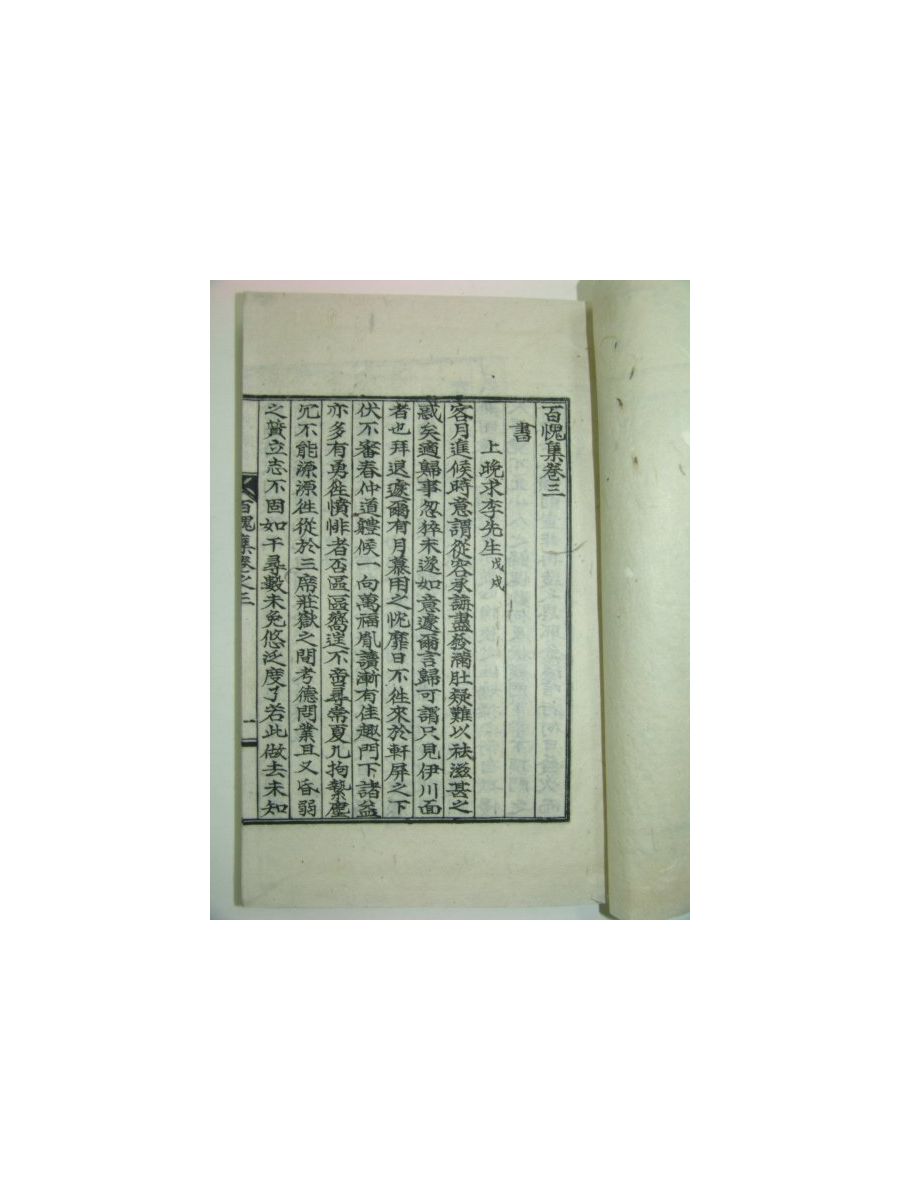 百愧集卷三
書
上晩求李先生 戊戌
客月進候時意謂從容承誨盡發滿肚疑難以祛滋甚之
惑矣適歸事忽猝未遂如意遽爾言歸可謂只見伊川面
者也拜退遽爾有月慕用之忱靡日不徃來於軒屛之下
伏不審春仲道軆候一向萬福胤讀漸有佳趣門下諸益
亦多有勇徃憤悱者否區區窩逞不啻尋常夏九拘縶塵
冗不能源源徃從於三席莊嶽之間考德問業且又昏弱
之質立志不固如干尋數未免悠泛度了若此做去未知
百愧集卷之三
一